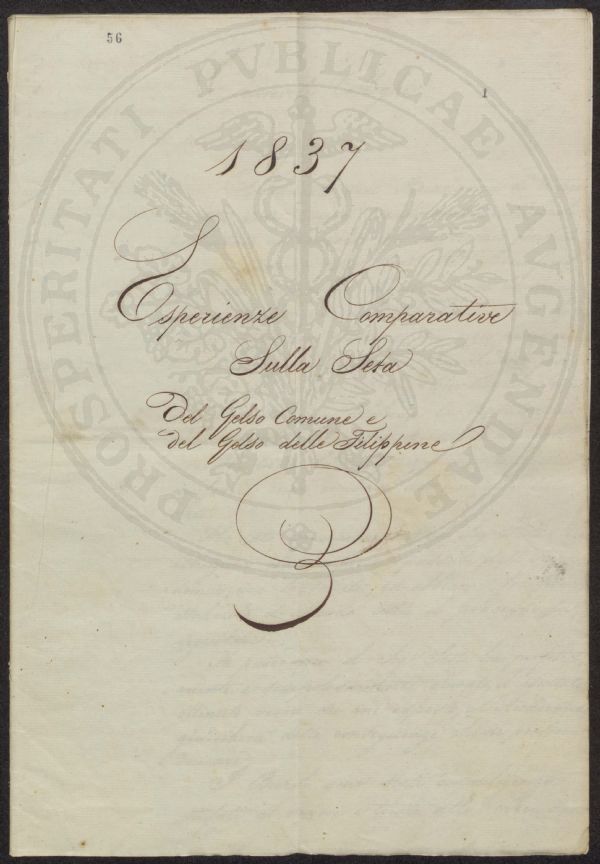 56
1
1837
Esperienze Comparative
Sulla Seta
Del Gelso Comune e
del Gelso delle Filippine
PROSPERITATI PVBLICAE AVGENDAE